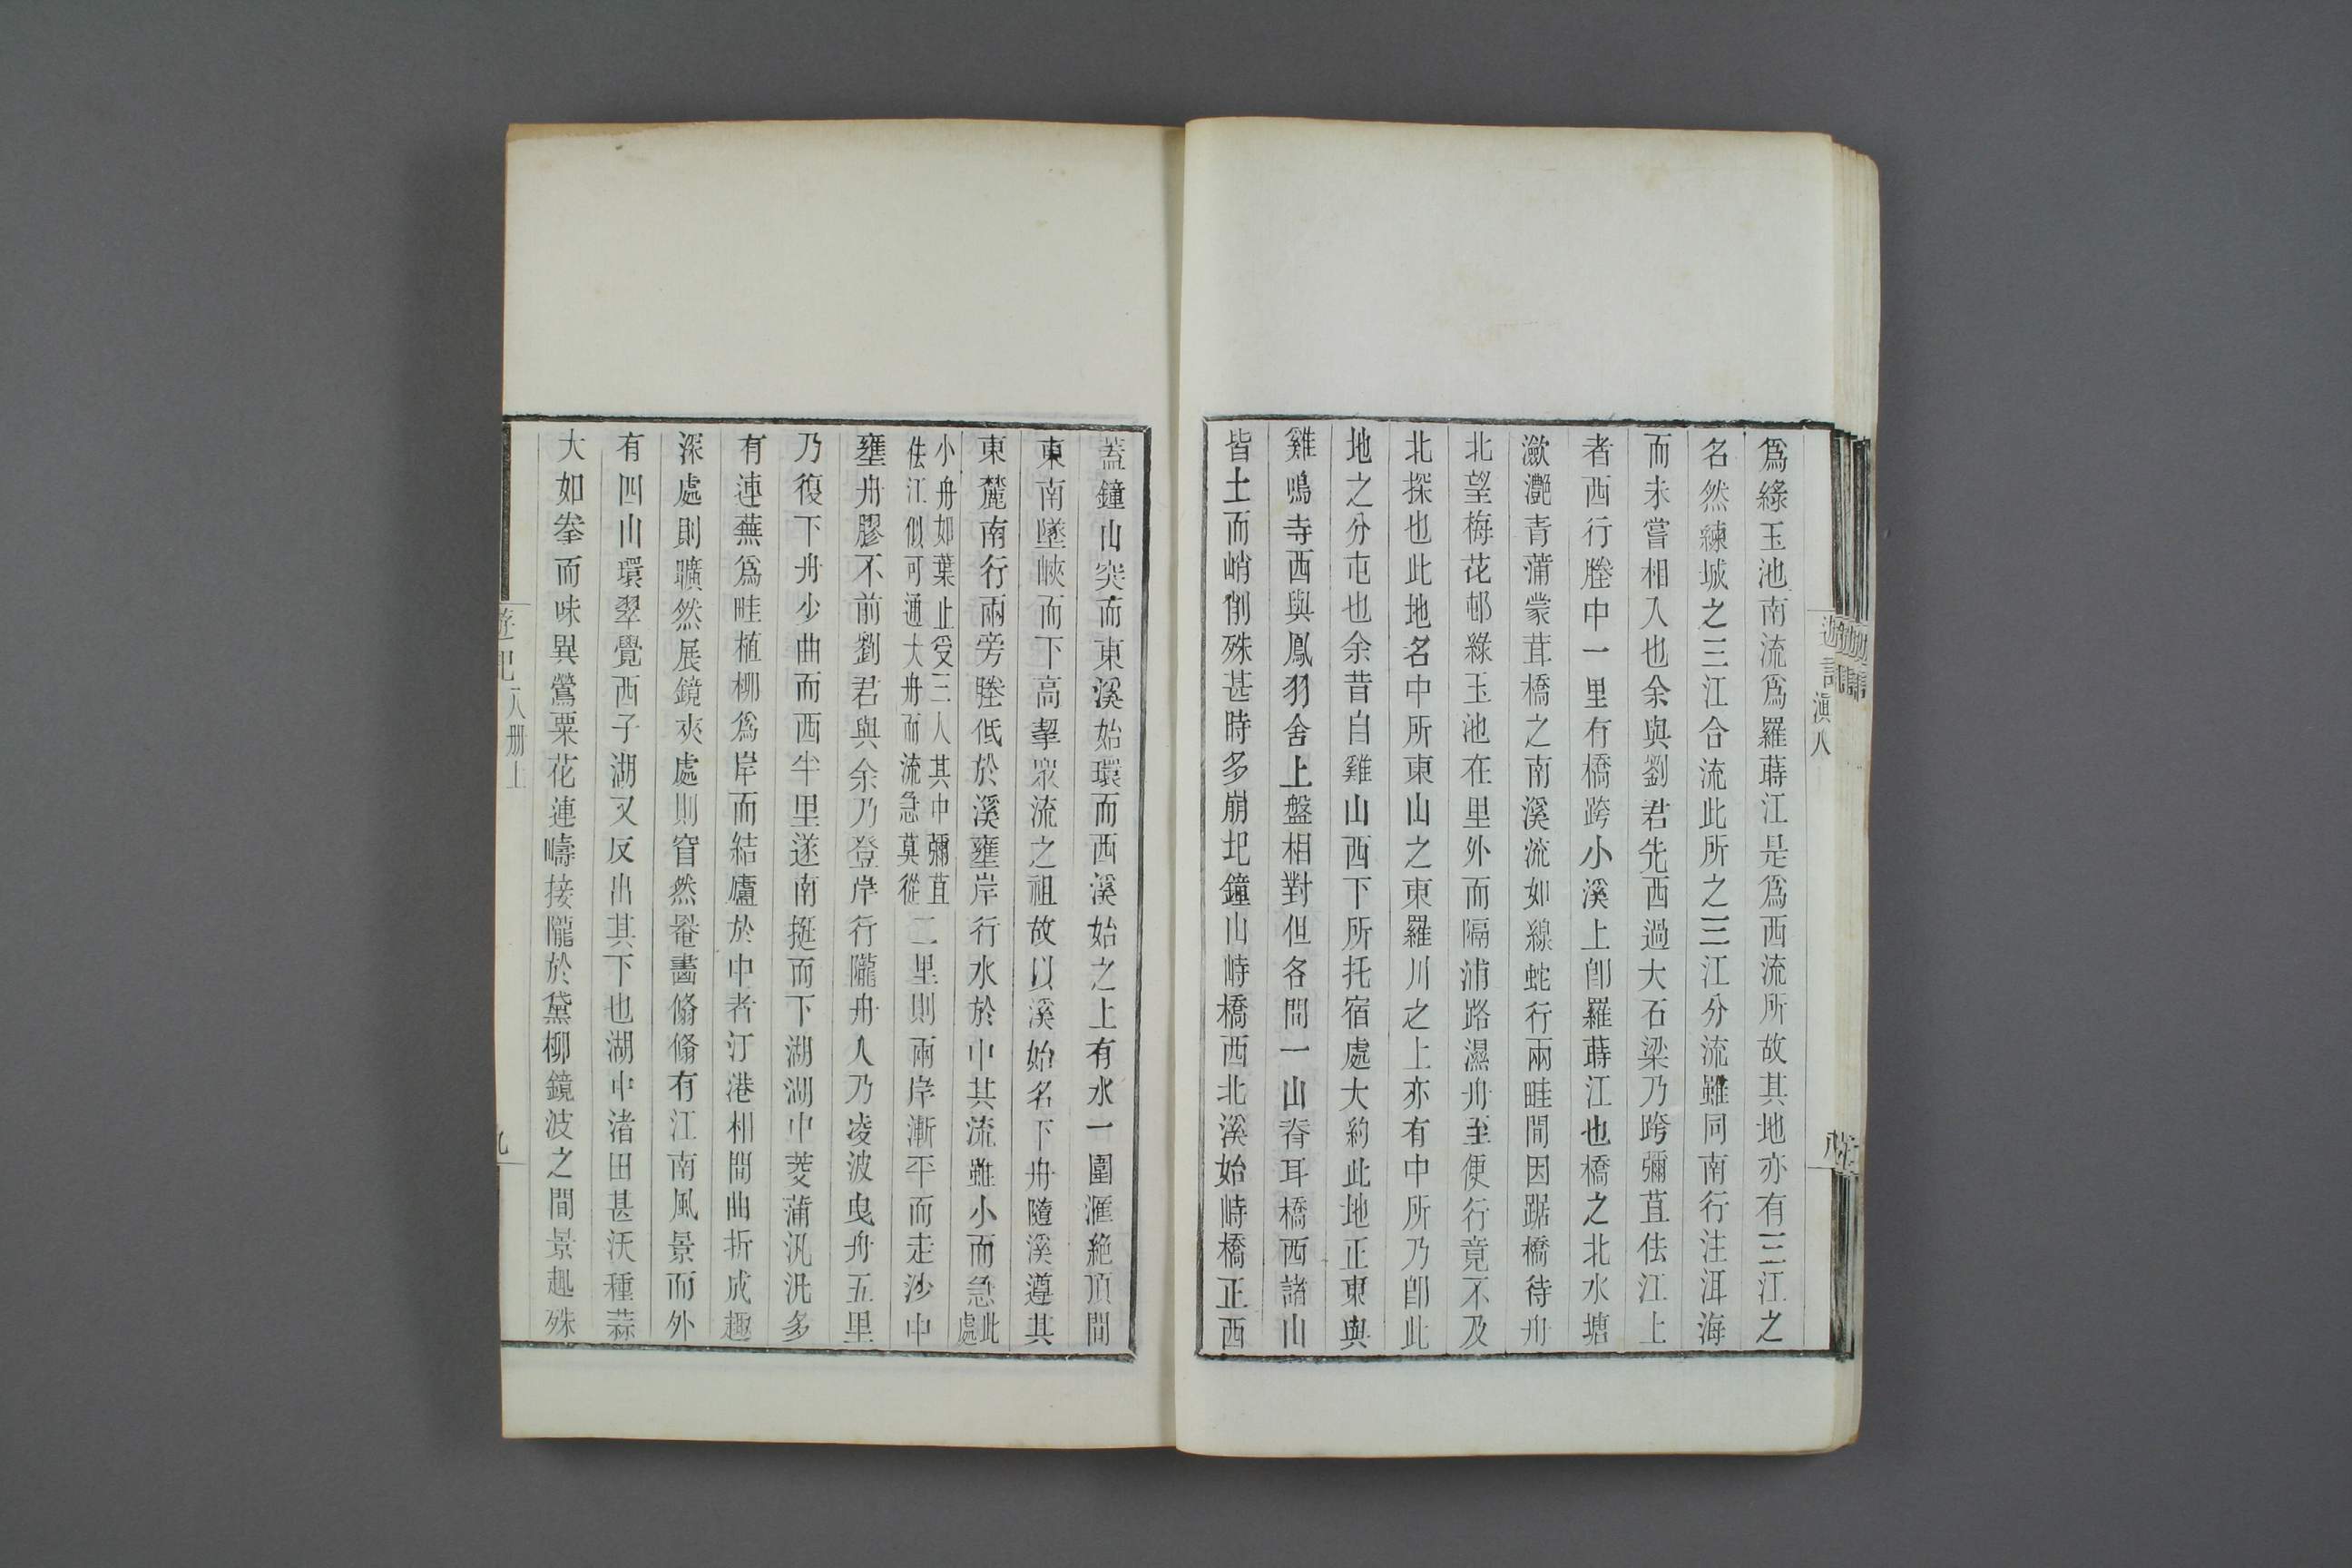 爲綠玉池南流爲羅蒔江是爲西流所故其地亦有三江之
名然練城之三江合流此所之三江分流雖同南行注洱海
而未嘗相入也余與劉君先西過大石梁乃跨彌苴佉江上
者西行塍中一里有橋跨小溪上卽羅蒔江也橋之北水塘
瀲灧青蒲蒙茸橋之南溪流如線蛇行兩畦間因踞橋待舟
北望梅花邨綠玉池在里外而隔浦路濕舟至便行竟不及
北探也此地名中所東山之東羅川之上亦有中所乃卽此
地之分屯也余昔自雞山西下所托宿處大約此地正東與
雞鳴寺西與鳳羽舍上盤相對但各間一山脊耳橋西諸山
皆土而峭削殊甚時多崩圯鐘山峙橋西北溪始峙橋正西
蓋鐘山突而東溪始環而西溪始之上有水一圍滙絶頂間
東南墜峽而下高挈衆流之祖故以溪始名下舟隨溪遵其
東麓南行兩旁塍低於溪壅岸行水於中其流雖小而急此處
小舟如葉止受三人其中彌苴佉江似可通大舟而流急莫從二里則兩岸漸平而走沙中
壅舟膠不前劉君與余乃登岸行隴舟人乃凌波曳舟五里
乃復下舟少曲而西半里遂南挺而下湖湖中菱蒲汎汎多
有連蕪爲畦植柳爲岸而結廬於中者汀港相間曲折成趣
深處則曠然展鏡夾處則窅然罨畵翛翛有江南風景而外
有四山環翠覺西子湖又反出其下也湖中渚田甚沃種蒜
大如拳而味異鶯粟花連疇接隴於黛柳鏡波之間景趣殊
遊記
滇八
遊記
八册上
九